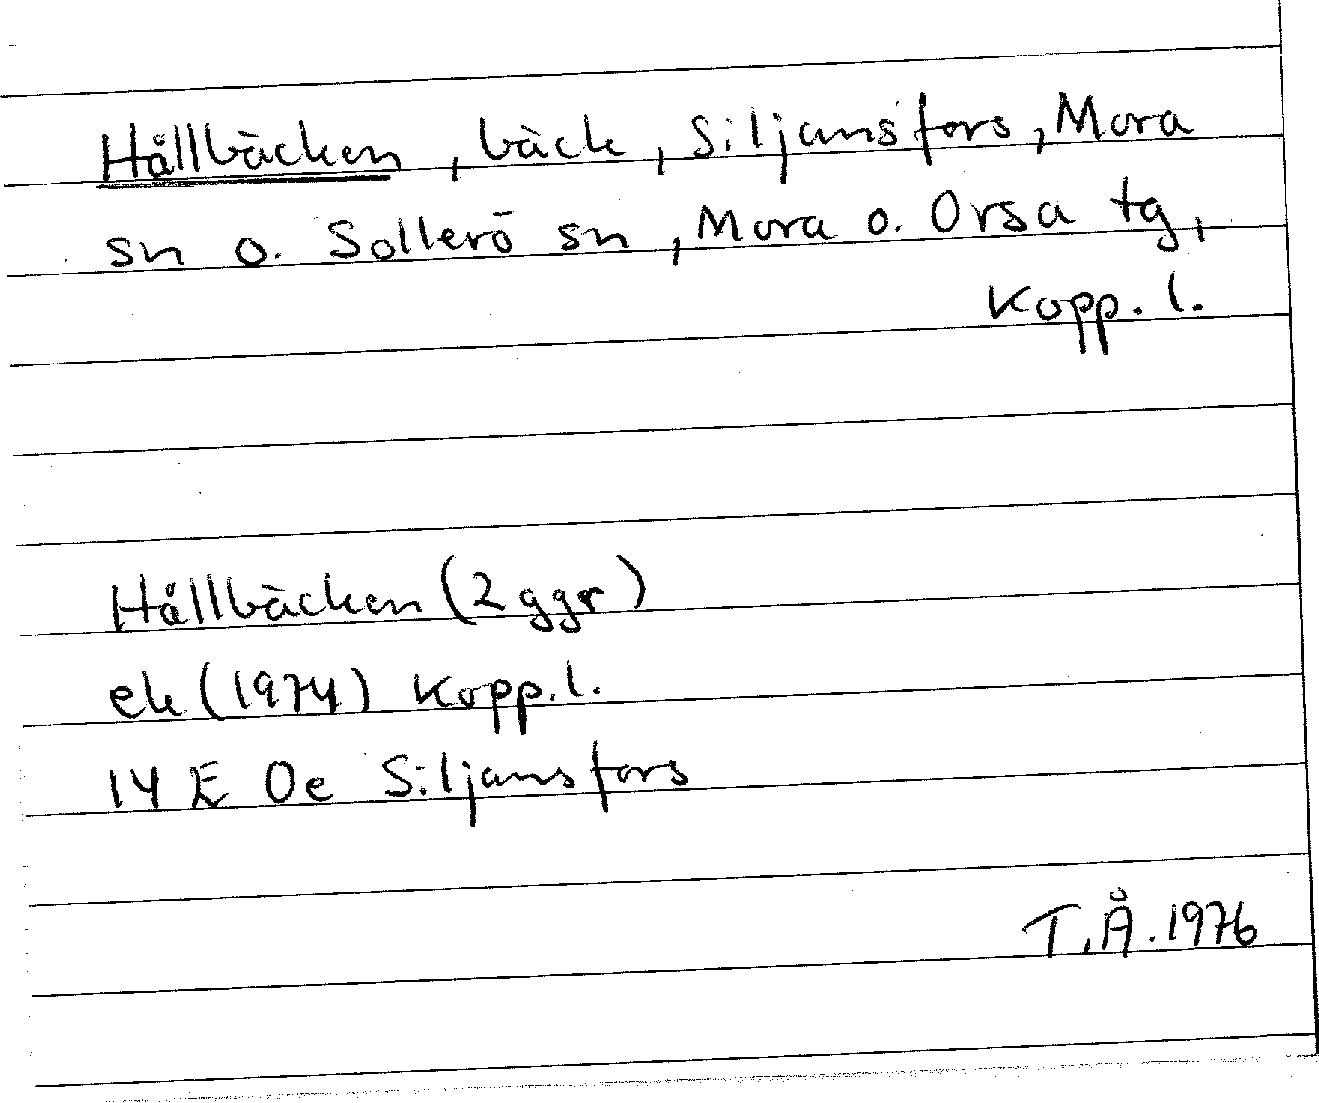 Hållbäcken, bäck, Siljansfors, Mora
sn o. Sollerö sn, Mora o. Orsa tg,
Kopp. l.
Hållbäcken (2 ggr)
ek (1974) Kopp. l.
14 E 0e Siljansfors
T.Å. 1976